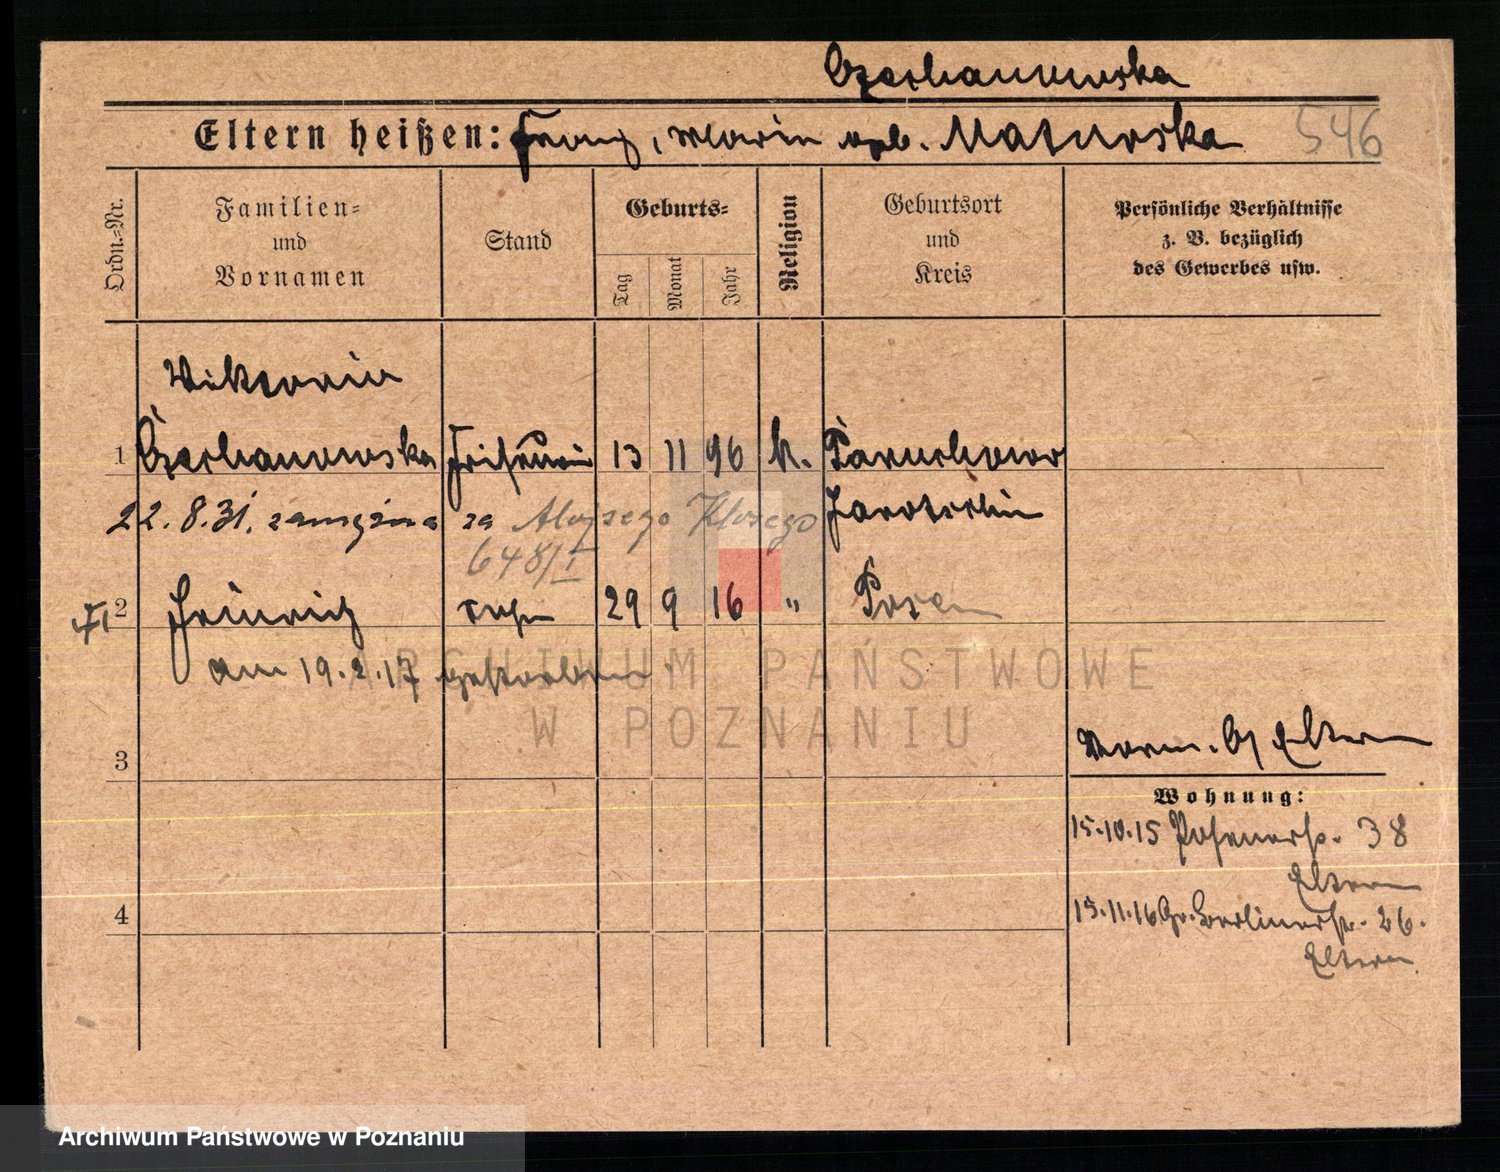 Czechanowska
Eltern heißen: Franz, Maria geb. Maturska 546
Ordn.-Nr.
Familien- und Vornamen
Stand
Geburts-
Tag Monat Jahr
Religion
Geburtsort und Kreis
Persönliche Verhältnisse z. B. bezüglich des Gewerbes usw.
Viktoria
1 Czechanowska 13 11 96 k.
22.8.31. zamężna za Alojzego Jarotschin
648/I
2 Heinrich Sohn 29 9 16 " Posen
am 19.2.17 gestorben
3
Eltern
Wohnung:
15.10.15 Posenerstr. 38
Eltern
4
15.11.16 Gr. Berlinerstr. 26.
Eltern
ARCHIWUM PAŃSTWOWE
W POZNANIU
Archiwum Państwowe w Poznaniu